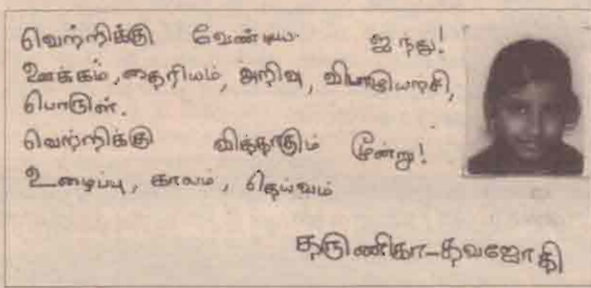 வெற்றிக்கு வேண்டிய ஐந்து!
ஊக்கம், தைரியம், அறிவு, விடாமுயற்சி,
பொருள்.
வெற்றிக்கு வித்தாகும் மூன்று!
உழைப்பு, காலம், தெய்வம்
தருணிகா-தவஜோதி